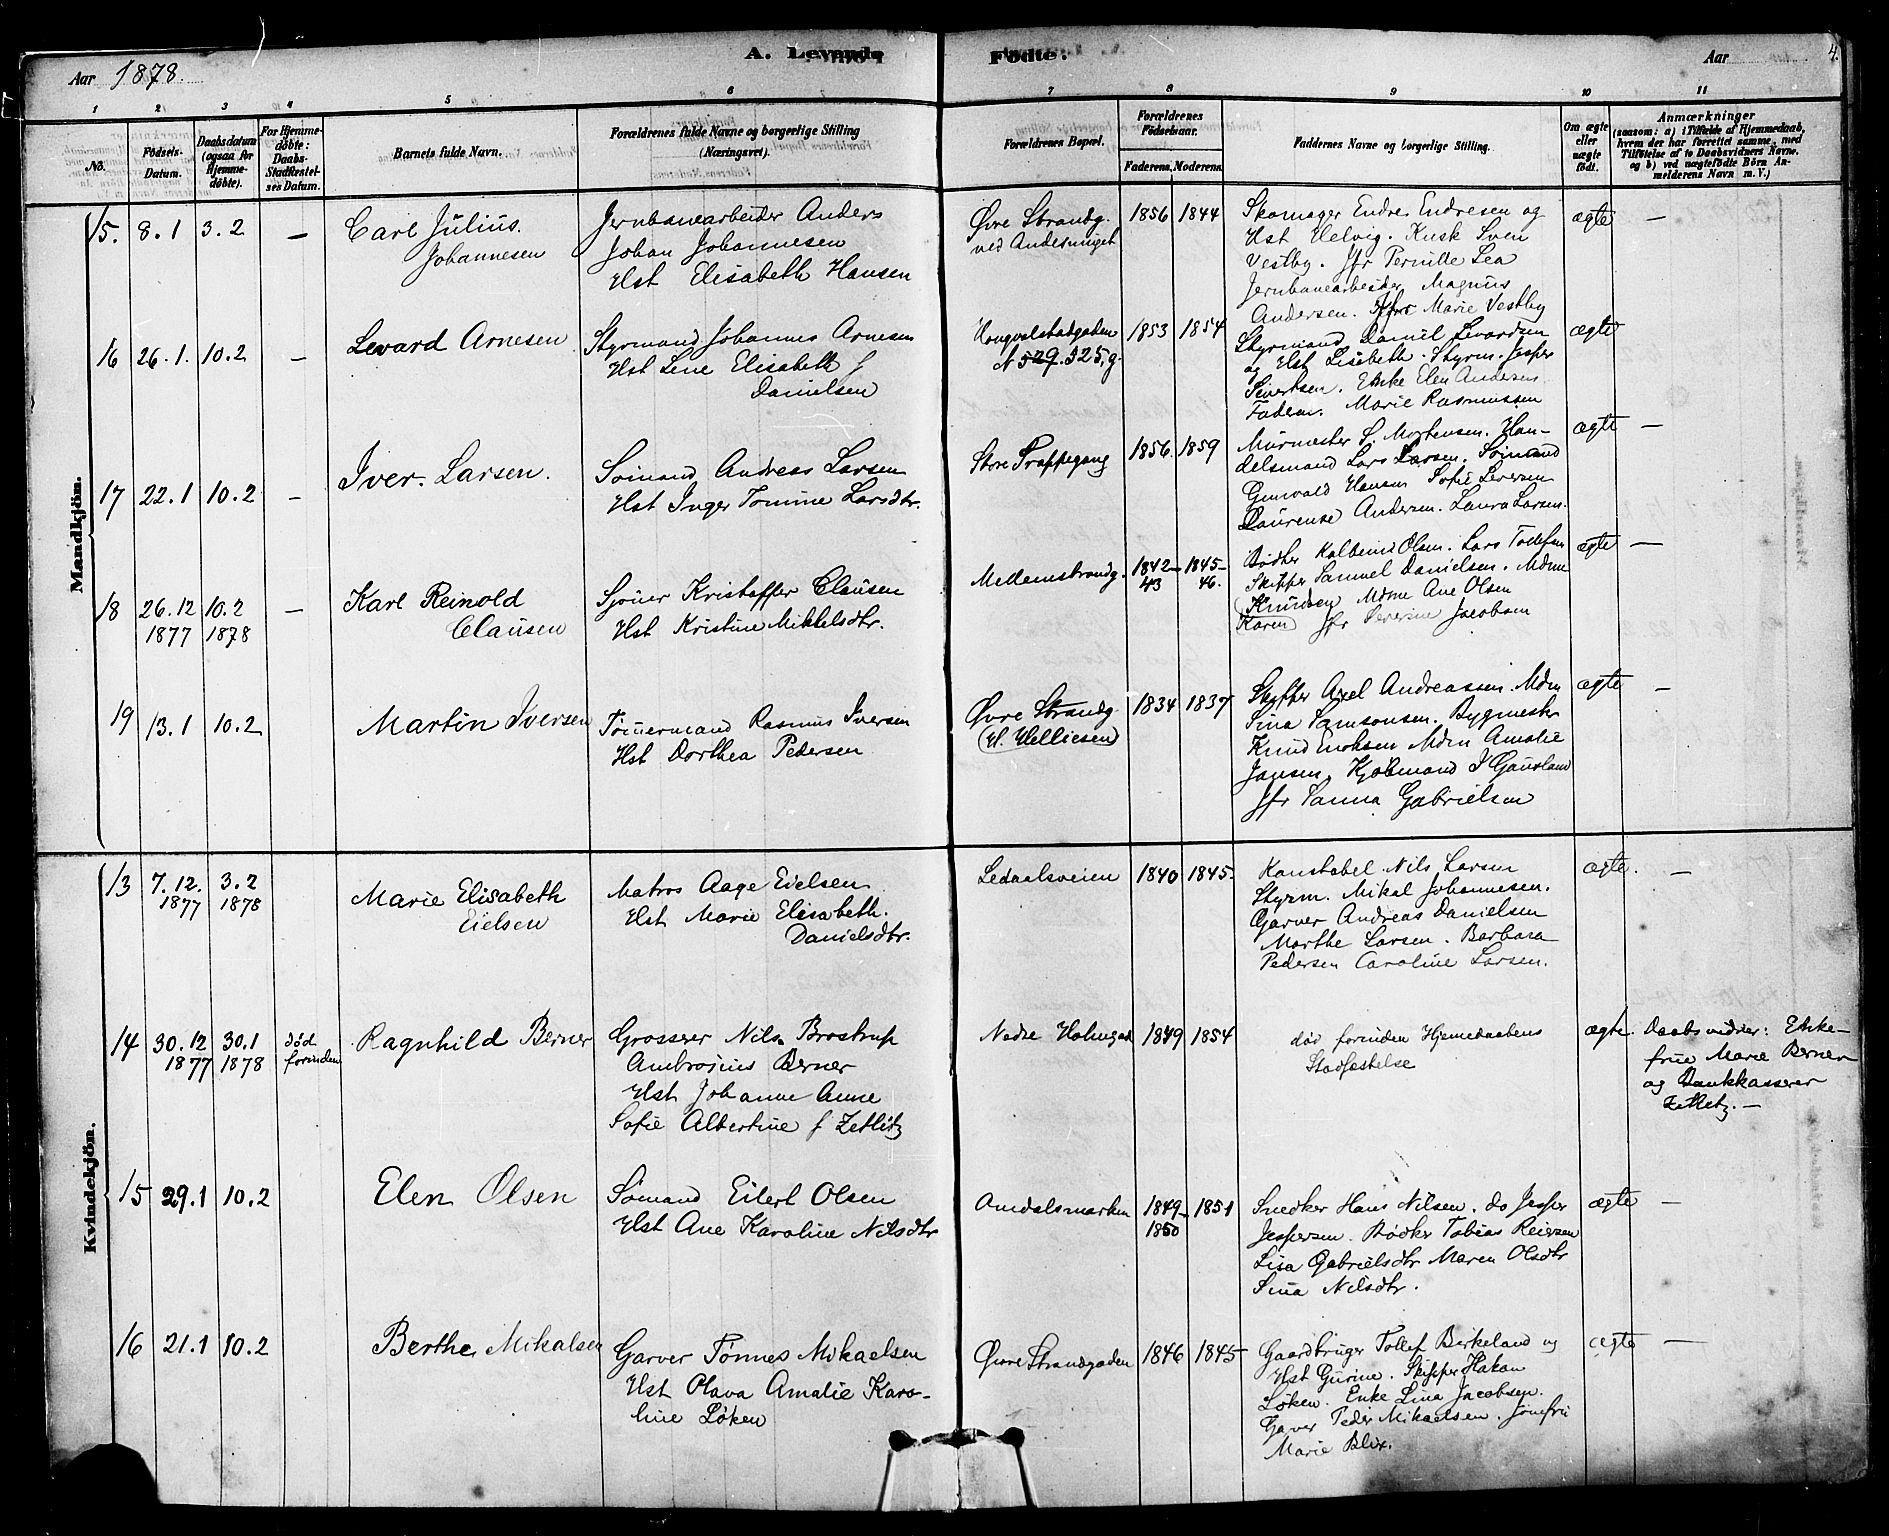 Aar 1878. A. Levende Fødte. Aar 4.
1 2 3 4 5 6 7 8 9 10 11
No.
Fødsels-Datum.
Daabsdatum (ogsaa for Hjemme-døbte).
For Hjemme-døbte: Daabs-Stadfæstel-ses Datum.
Barnets fulde Navn.
Forældrenes fulde Navne og borgerlige Stilling (Næringsvei).
Forældrenes Bopæl.
Forældrenes Fødselsaar.
Faderens. Moderens.
Faddernes Navne og borgerlige Stilling.
Om ægte eller uægte født.
Anmærkninger
(saasom: a) i Tilfælde af Hjemmedaab, hvem der har forrettet samme, med Tilføielse af to Daabsvidners Navne. og b) ved uægtefødte Børn An-melderens Navn m. V.)
Mandkjøn.
15. 8.1 3.2 —
Carl Julius.
Johannesen
Jernbanearbeider Anders
Johan Johannesen
Hst Elisabeth Hansen
Øvre Strandg.
ved Andasmuget
1856 1844
Skomager Endre Endresen og
Hst Helvig. Kusk Sven
Vestby. Jfr Pernille Lea
Jernbanearbeider Magnus
Andersen. Jfr Marie Vestby
ægte —
16 26.1. 10.2 —
Levard Arnesen
Styrmand Johannes Arnesen
Hst Lene Elisabeth f
Danielsen
Hougvaldstadgaden
N 529. 325, g.
1853 1854
Styrmand Daniel Levardsen
og Hst Lisabeth. Styrm. Jesper
Sivertsen. Enke Elen Andersen
Faderen. Marie Rasmussen
ægte
17 22.1 10.2 —
Iver Larsen.
Sømand Andreas Larsen
Hst Inger Tomine Larsdtr.
Store Trappegang
1856. 1859
Murmester S. Mortensen. Han-
delsmand Lars Larsen. Sømand
Gunvald Hansen Sofie Iversen
Laurense Andersen. Laura Larsen.
ægte —
18 26.12 1877 10.2 1878 —
Karl Reinold
Clausen
Sjouer Kristoffer Clausen
Hst Kristine Mikkelsdtr.
Mellemstrandg.
1842-43 1845-46.
Bødker Kolbeins Olsen. Lars Tollefsen
Skipper Samuel Danielsen. Mdme
Knudsen Mdme Ane Olsen
Karen Jfr Severine Jacobsen
ægte —
19 13.1 10.2
Martin Iversen
Tømmermand Rasmus Iversen
Hst Dorthea Pedersen
Øvre Strandg
(H. Helliesen)
1834 1837
Skipper Axel Andreassen. Mdm
Sina Samsonsen. Bygmester
Knud Mdm Amalie
Jansen. Kjøbmand I Gausland
Jfr Sanna Gabrielsen
ægte —
Kvindekjøn.
13 7.12. 1877 3.2 1878
Marie Elisabeth
Eielsen
Matros Aage Eielsen
Hst Marie Elisabeth.
Danielsdtr.
Ledaalsveien
1840 1845.
Konstabel Nils Larsen
Styrm. Mikal Johannesen.
Garver Andreas Danielsen
Marthe Larsen. Barbara
Pedersen Caroline Larsen.
ægte. —
14 30.12 1877 30.1 1878 død forinden
Ragnhild Berner
Grosserer Nils Brostrup
Ambrosius Berner
Hst Johanne Anne
Sofie Albertine f Zetlitz
Nedre Holmegad
1849 1854
død forinden Hjemedaabens
Stadfæstelse
ægte.
Daabsvidner: Enke-
frue Marie Berner
og Bankkasserer
Zetlitz. —
15 29.1 10.2
Elen Olsen
Sømand Eilert Olsen
Hst Ane Karoline Nilsdtr
Omdalsmarken
1849-1850 1851
Snedker Hans Nilsen. do Jesper
Jespersen. Bødker Tobias Reiersen
Lisa Gabrielsdtr Maren Olsdtr
Sina Nilsdtr.
ægte —
16 21.1 10.2
Berthe Mikalsen
Garver Tønnes Mikaelsen
Hst Olava Amalie Karo-
line Løken
Øvre Strandgaden
1846 1845
Gaardbruger Tollef Birkeland og
Hst Gurine. Skipper Hakon
Løken. Enke Lina Jacobsen.
Garver Peder Mikaelsen. Jomfru
Marie Blix.
ægte —